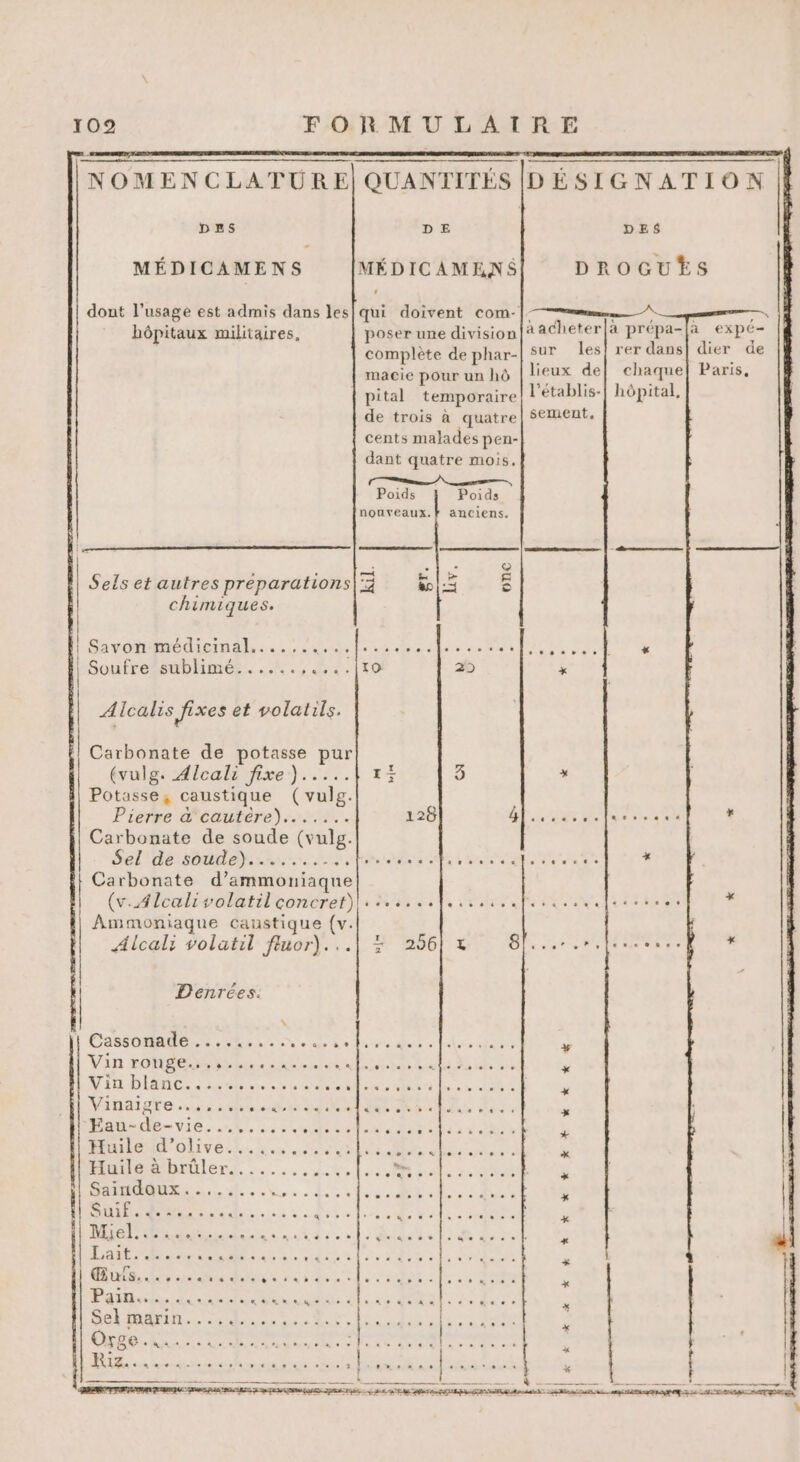 102 FORMULAIRE
NOMENCLATURE QUANTITÉS DÉSIGNATION
DES DE DES
MÉDICAMENS MÉDICAMENS DROGUES
dont l'usage est admis dans les qui doivent com-
hôpitaux militaires, poser une division à acheter à prépa- à expé-
complète de phar- sur les rer dans dier de
macie pour un hô lieux de chaque Paris,
pital temporaire l'établis- hôpital,
de trois à quatre sement,
cents malades pen-
dant quatre mois.
Poids Poids
nouveaux. anciens.
Sels et autres préparations kil. gr. liv. onc
chimiques.
Savon médicinal........... *
Soufre sublimé........... 10 20 *
Alcalis fixes et volatils.
Carbonate de potasse pur
(vulg. Alcali fixe)..... 1½ 3 *
Potasse, caustique (vulg.
Pierre à cautère)....... 128 4 *
Carbonate de soude (vulg.
Sel de soude).......... *
Carbonate d'ammoniaque
(v. Alcali volatil concret) *
Ammoniaque caustique (v.
Alcali volatil fluor)... ½ 256 1 8 *
Denrées.
Cassonade ............... *
Vin rouge................ *
Vin blanc................ *
Vinaigre ................ *
Eau-de-vie............... *
Huile d'olive............ *
Huile à brûler........... *
Saindoux ................ *
Suif..................... *
Miel..................... *
Lait..................... *
Œufs..................... *
Pain..................... *
Sel marin................ *
Orge..................... *
Riz...................... *